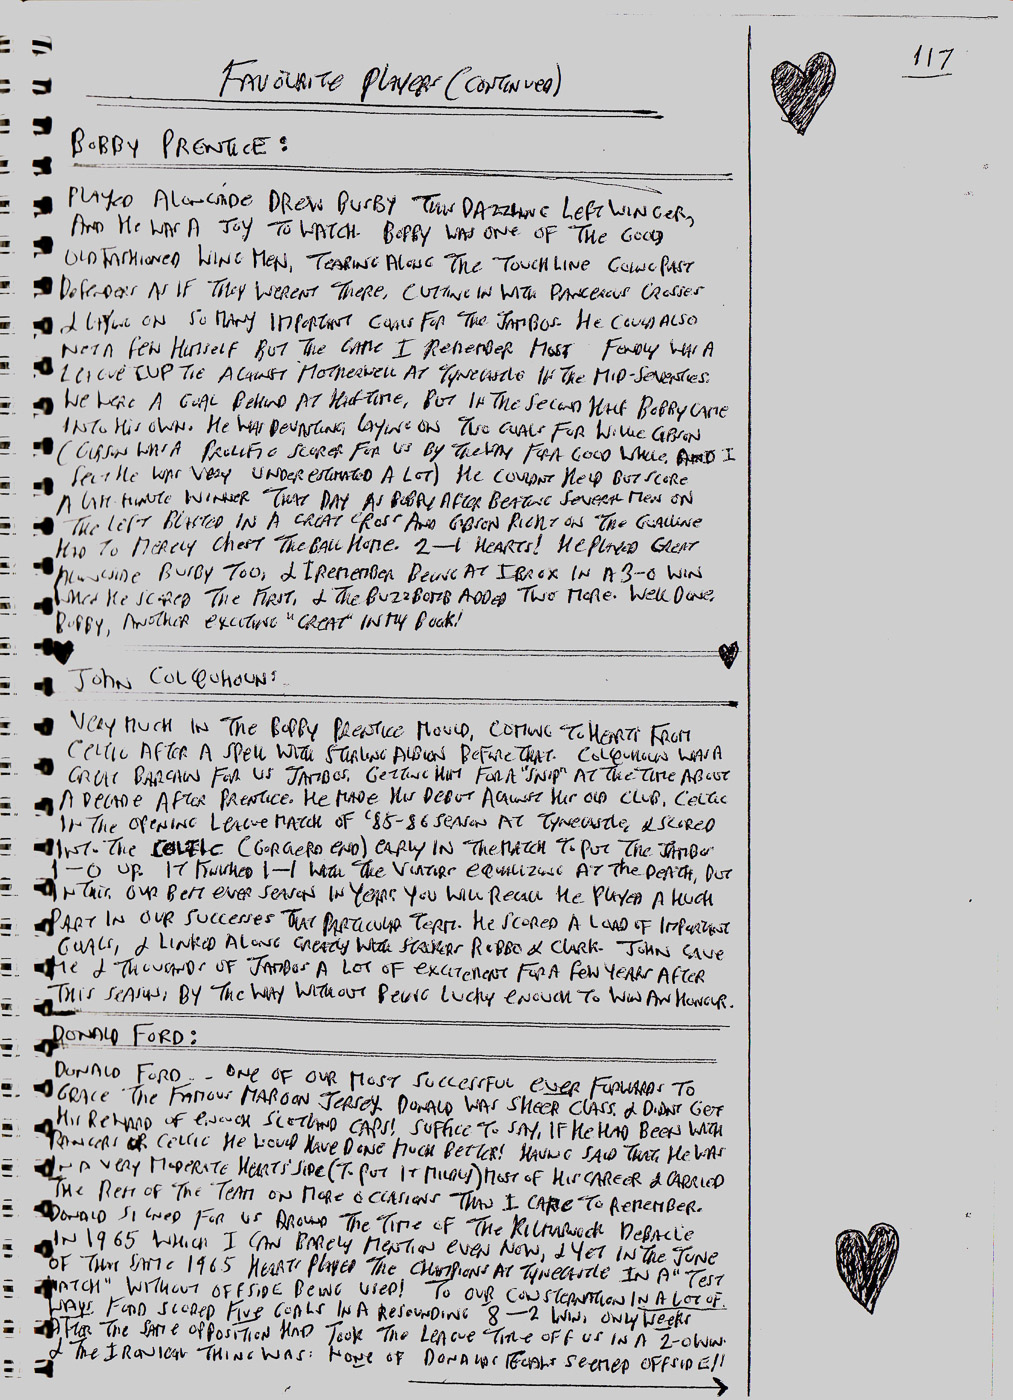 117
FAVOURITE PLAYERS (CONTINUED)
BOBBY PRENTICE:
PLAYED ALONGSIDE DREW BUSBY THIS DAZZLING LEFT WINGER,
AND HE WAS A JOY TO WATCH. BOBBY WAS ONE OF THE GOOD
OLD FASHIONED WING MEN, TEARING ALONG THE TOUCHLINE GOING PAST
DEFENDERS AS IF THEY WERENT THERE, CUTTING IN WITH DANGEROUS CROSSES
& LAYING ON SO MANY IMPORTANT GOALS FOR THE JAMBOS. HE COULD ALSO
NET A FEW HIMSELF BUT THE GAME I REMEMBER MOST FONDLY WAS A
LEAGUE CUP TIE AGAINST MOTHERWELL AT TYNECASTLE IN THE MID-SEVENTIES.
WE WERE A GOAL BEHIND AT HALF-TIME, BUT IN THE SECOND HALF BOBBY CAME
INTO HIS OWN. HE WAS DEVASTING, LAYING ON TWO GOALS FOR WILLIE GIBSON
(GIBSON WAS A PROLIFIC SCORER FOR US BY THE WAY FOR A GOOD WHILE, AND I
FELT HE WAS VERY UNDERESTIMATED A LOT) HE COULDNT HELP BUT SCORE
A LAST-MINUTE WINNER THAT DAY AS BOBBY AFTER BEATING SEVERAL MEN ON
THE LEFT BLASTED IN A GREAT CROSS AND GIBSON RIGHT ON THE GOALLINE
HAD TO MERELY CHEST THE BALL HOME. 2-1 HEARTS! HE PLAYED GREAT
ALONGSIDE BUSBY TOO, & I REMEMBER BEING AT IBROX IN A 3-0 WIN
WHEN HE SCORED THE FIRST, & THE BUZZBOMB ADDED TWO MORE. WELL DONE,
BOBBY, ANOTHER EXCITING "GREAT" IN MY BOOK!
JOHN COLQUHOUN:
VERY MUCH IN THE BOBBY PRENTICE MOULD, COMING TO HEARTS FROM
CELTIC AFTER A SPELL WITH STIRLING ALBION BEFORE THAT. COLQUHOUN WAS A
GREAT BARGAIN FOR US JAMBOS, GETTING HIM FOR A "SNIP" AT THE TIME ABOUT
A DECADE AFTER PRENTICE. HE MADE HIS DEBUT AGAINST HIS OLD CLUB, CELTIC
IN THE OPENING LEAGUE MATCH OF '85-86 SEASON AT TYNECASTLE, & SCORED
INTO THE CELTIC (GORGIE RD END) EARLY IN THE MATCH TO PUT THE JAMBOS
1-0 UP. IT FINISHED 1-1 WITH THE VISITORS EQUALIZING AT THE DEATH, BUT
IN THIS, OUR BEST EVER SEASON IN YEARS YOU WILL RECALL HE PLAYED A HUGH
PART IN OUR SUCCESSES THAT PARTICULAR TERM. HE SCORED A LOAD OF IMPORTANT
GOALS, & LINKED ALONG GREATLY WITH STRIKERS ROBBO & CLARK. JOHN GAVE
ME & THOUSANDS OF JAMBOS A LOT OF EXCITEMENT FOR A FEW YEARS AFTER
THIS SEASON, BY THE WAY WITHOUT BEING LUCKY ENOUGH TO WIN AN HONOUR.
DONALD FORD:
DONALD FORD -- ONE OF OUR MOST SUCCESSFUL EVER FORWARDS TO
GRACE THE FAMOUS MAROON JERSEY. DONALD WAS SHEER CLASS, & DIDNT GET
HIS REWARD OF ENOUGH SCOTLAND CAPS! SUFFICE TO SAY, IF HE HAD BEEN WITH
RANGERS OR CELTIC HE WOULD HAVE DONE MUCH BETTER! HAVING SAID THAT, HE WAS
IN A VERY MODERATE HEARTS' SIDE (TO PUT IT MILDLY) MOST OF HIS CAREER & CARRIED
THE REST OF THE TEAM ON MORE OCCASIONS THAN I CARE TO REMEMBER.
DONALD SIGNED FOR US AROUND THE TIME OF THE KILMARNOCK DEBACLE
IN 1965 WHICH I CAN BARELY MENTION EVEN NOW, & YET IN THE JUNE
OF THAT SAME 1965 HEARTS PLAYED THE CHAMPIONS AT TYNECASTLE IN A "TEST
MATCH" WITHOUT OFFSIDE BEING USED! TO OUR CONSTERNATION IN A LOT OF
WAYS FORD SCORED FIVE GOALS IN A RESOUNDING 8-2 WIN, ONLY WEEKS
AFTER THE SAME OPPOSITION HAD TOOK THE LEAGUE TITLE OFF US IN A 2-0 WIN.
& THE IRONICAL THING WAS: NONE OF DONALDS GOALS SEEMED OFFSIDE!!